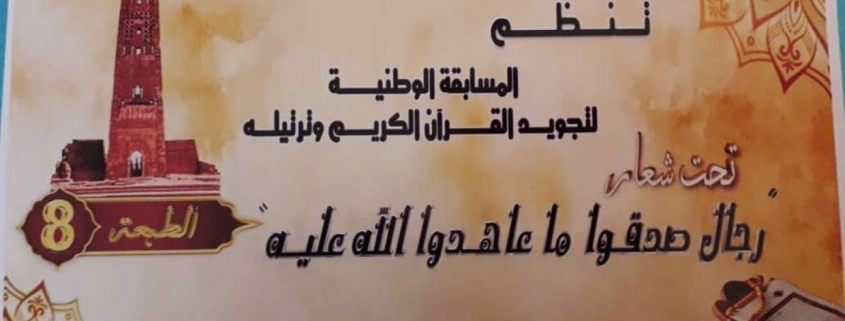 تنظم
المسابقة الوطنية
لتجويد القرآن الكريم وترتيله
تحت شعار
"رجال صدقوا ما عاهدوا الله عليه"
الطبعة 8